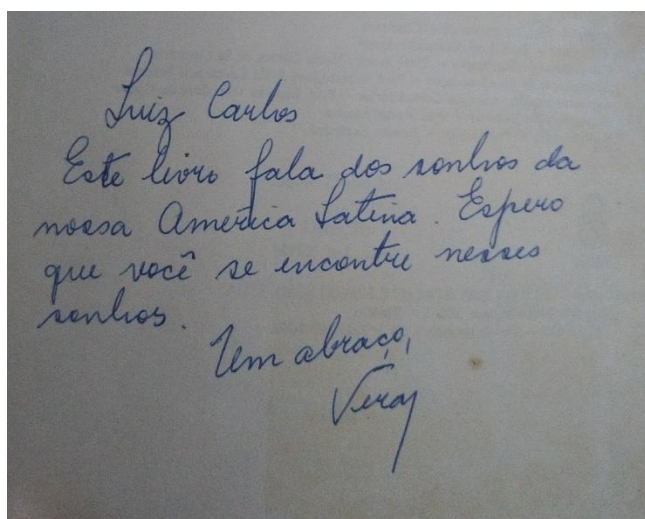 Luiz Carlos
Este livro fala dos sonhos da
nossa América Latina. Espero
que você se encontre nesses
sonhos.
Um abraço,
Vera